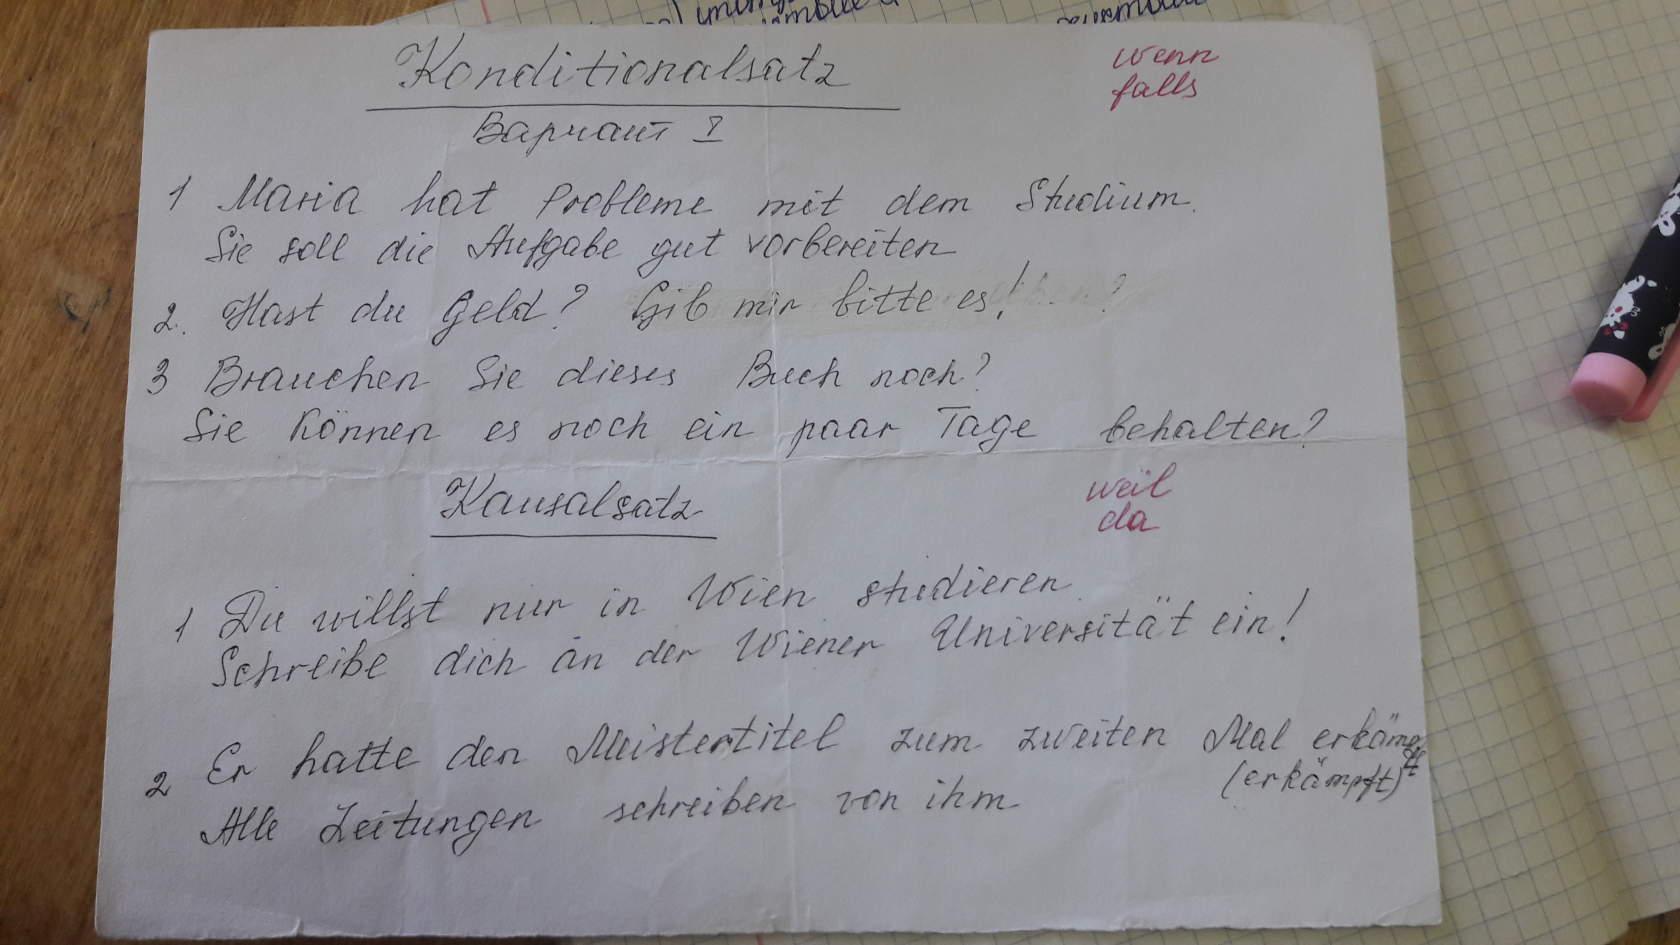 Konditionalsatz
wenn
falls
Вариант I
1 Maria hat Probleme mit dem Studium.
Sie soll die Aufgabe gut vorbereiten
2. Hast du Geld? Gib mir bitte es!
3 Brauchen Sie dieses Buch noch?
Sie können es noch ein paar Tage behalten?
Kausalsatz
weil
da
1 Du willst nur in Wien studieren.
Schreibe dich an der Wiener Universität ein!
2 Er hatte den Meistertitel zum zweiten Mal
(erkämpft)
Alle Zeitungen schreiben von ihm